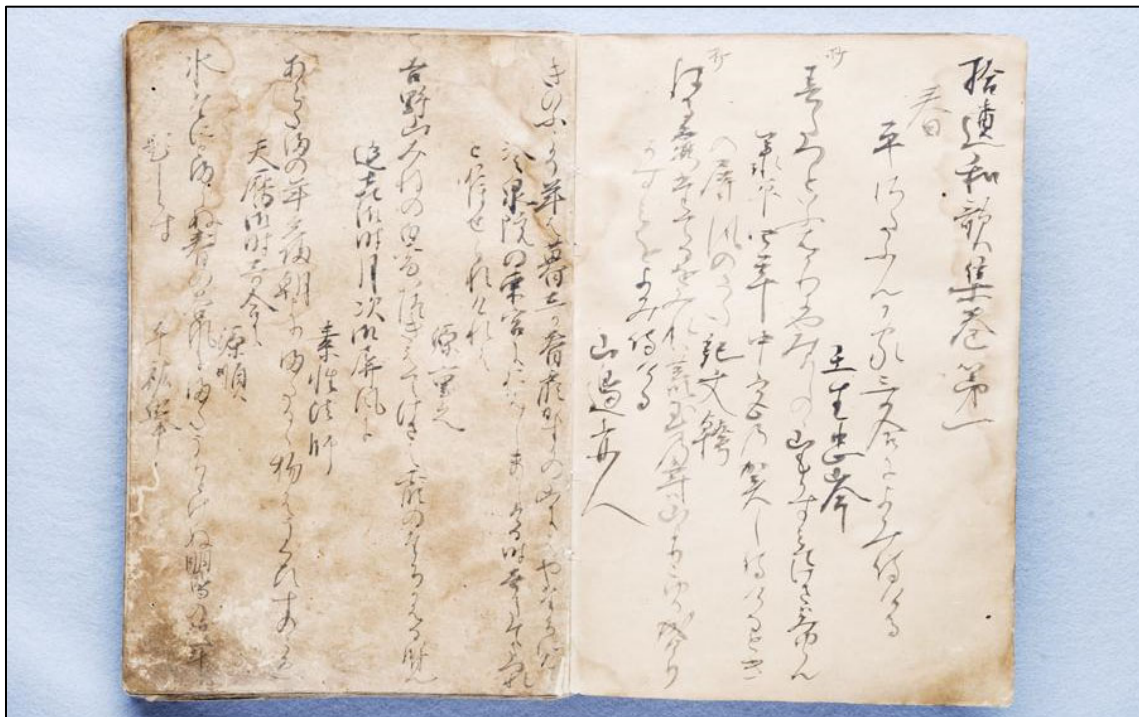 拾遺和歌集巻第一
春
平さたふんか家哥合によみ侍ける
壬生忠岑
春たつといふはかりにやみよしのの山もかすみてけさは見ゆらん
承平四年中宮の賀し侍ける時
の屏風のうた 紀文幹
はる霞たてるをみれは荒玉の年は山よりこゆる成けり
かすみをよみ侍ける
山邊赤人
きのふこそ年は暮しか春霞かすかの山にはや立にけり
冷泉院の東宮におはしましける時哥たてまつれ
と仰せられけれは
源重之
吉野山みねの白雪いつきえてけさは霞のたちかはるらん
延喜御時月次御屏風に
素性法師
あらたまの年立帰朝よりまたるる物はうくひすのこゑ
天暦御時哥合に
源順
氷たにとまらぬ春の谷風にまたうちとけぬ鶯の声
題しらす 平祐挙